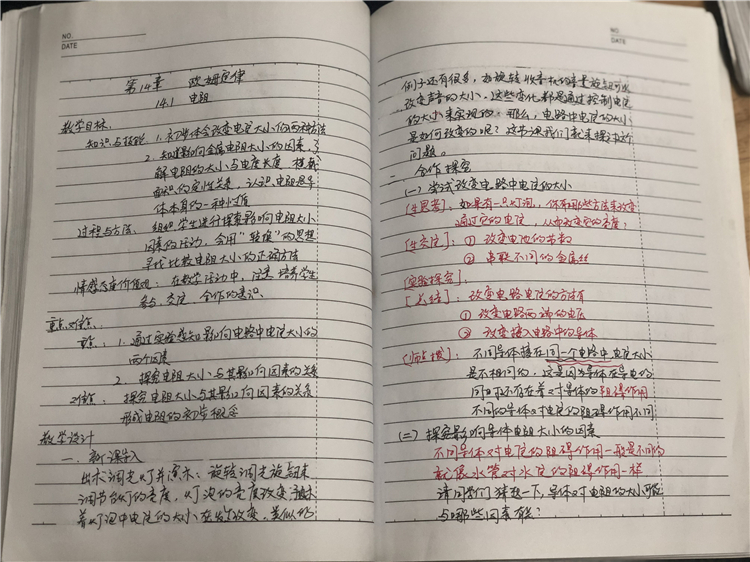 NO.
DATE
第14章 欧姆定律
14.1 电阻
教学目标
知识与技能: 1. 初步体会改变电流大小的两种方法
2. 知道影响金属电阻大小的因素,了
解电阻的大小与电度长度 横截
面积的定性关系,认识电阻是导
体本身的一种性质
过程与方法: 组织学生进行探索影响电阻大小
因素的活动,会用“转换”的思想
寻找比较电阻大小的正确方法
情感态度价值观: 在教学活动中,注意培养学生
参与、交流、合作的意识
重点对难点:
重点: 1. 通过实验感知影响电路中电流大小的
两个因素
2. 探究电阻大小与其影响因素的关系
难点: 探究电阻大小与其影响因素的关系
形成电阻的初步概念
教学设计
一、新课导入
出示调光灯并演示:旋转调光旋钮来
调节台灯的亮度,灯泡的亮度改变意味
着灯泡中电流的大小在发生改变,类似的
NO.
DATE
例子还有很多,如旋转收音机的音量旋钮可以
改变声音的大小,这些变化都是通过控制电流
的大小来实现的,那么,电路中电流的大小
是如何改变的呢?这节课我们就来探讨这个
问题。
二 合作探究
(一)尝试改变电路中电流的大小
[生思考]:如果有一只灯泡,你有哪些方法来改变
通过它的电流,从而改变它的亮度?
[生交流]:① 改变电池的节数
② 串联不同的金属丝
[实验探究]:
[总结]:改变电路电流的方法有
① 改变电路两端的电压
② 改变接入电路中的导体
[师点拨]:不同导体接在同一个电路中,电流大小
是不相同的,这是因为导体在导电的
同时还存在着对导体的阻碍作用
不同的导体对电流的阻碍作用不同
(二)探究影响导体电阻大小的因素
不同导体对电流的阻碍作用一般是不同的
就像水管对水流的阻碍作用一样
请同学们猜想一下,导体对电阻的大小可能
与哪些因素有关?